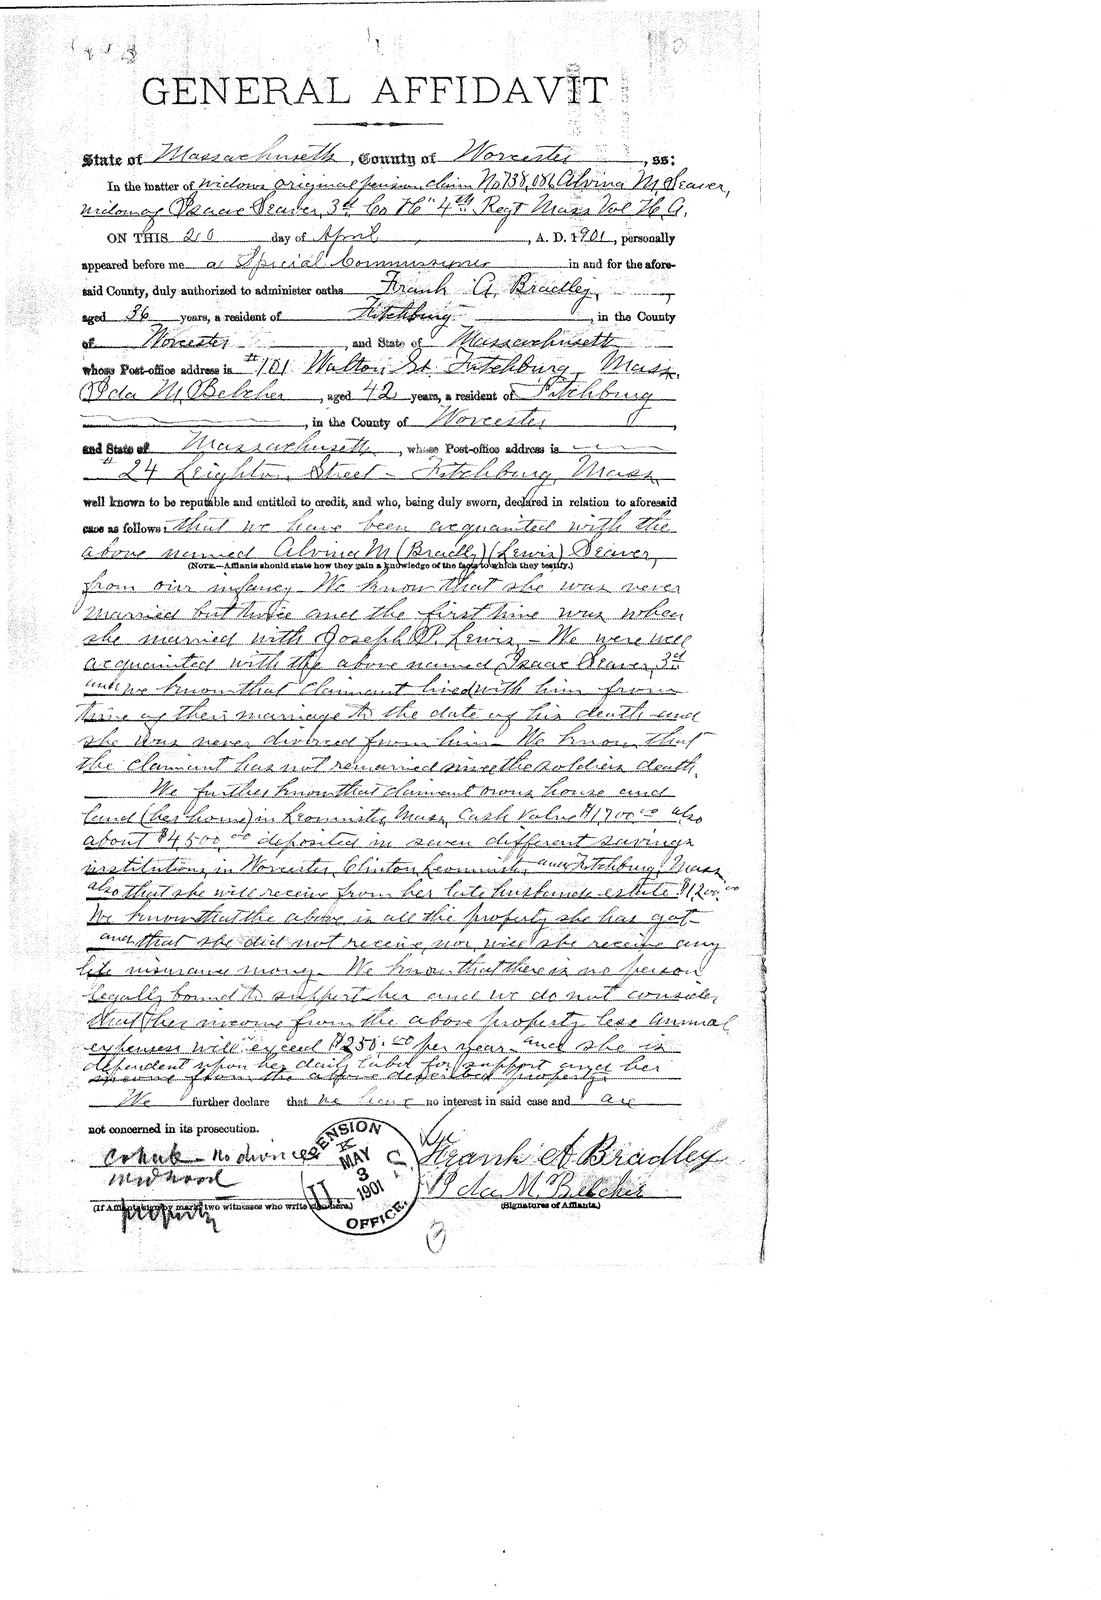 GENERAL AFFIDAVIT
State of Massachusetts, County of Worcester, ss:
In the matter of widows original pension claim No 738,086 Alvina M. Seaver,
widow of Isaac Seaver, 3rd Co "H" 4th Regt Mass Vol H. A.
ON THIS 20 day of April, A. D. 1901, personally
appeared before me a Special Commissioner in and for the afore-
said County, duly authorized to administer oaths Frank A. Bradley,
aged 36 years, a resident of Fitchburg, in the County
of Worcester, and State of Massachusetts
whose Post-office address is #101 Walton St. Fitchburg, Mass.
Ida M. Belcher, aged 42 years, a resident of Fitchburg
, in the County of Worcester,
and State of Massachusetts, whose Post-office address is
# 24 Leighton Street - Fitchburg, Mass
well known to be reputable and entitled to credit, and who, being duly sworn, declared in relation to aforesaid
case as follows: that we have been acquainted with the
above named Alvina M (Bradly) (Lewis) Seaver,
(NOTE.—Affiants should state how they gain a knowledge of the facts to which they testify.)
from our infancy - We know that she was never
married but twice and the first time was when
she married with Joseph P. Lewis, - We were well
acquainted with the above named Isaac Seaver, 3rd
and we know that claimant lived with him from
time of their marriage to the date of his death and
she was never divorced from him - We know that
the claimant has not remarried since the soldiers death.
We further know that claimant owns house and
land (her home) in Leominster, Mass, cash value $1700.00 also
about $4,500.00 deposited in seven different savings
institutions in Worcester, Clinton, Leominster and Fitchburg, Mass
also that she will receive from her late husbands estate $1200.00
We know that the above is all the property she has got
and that she did not receive, nor, will she receive any
life insurance money. We know that there is no person
legally bound to support her and we do not consider
that her income from the above property less annual
expenses will exceed $250.00 per year and she is
dependent upon her daily labor for support and her
income from the above described property.
We further declare that we have no interest in said case and are
not concerned in its prosecution.
cohab - no divorce
widhood
property
PENSION
MAY
3
1901
OFFICE.
Frank A Bradley
Ida M. Belcher
(If Affiants sign by mark, two witnesses who write sign here.)
(Signatures of Affiants.)
3